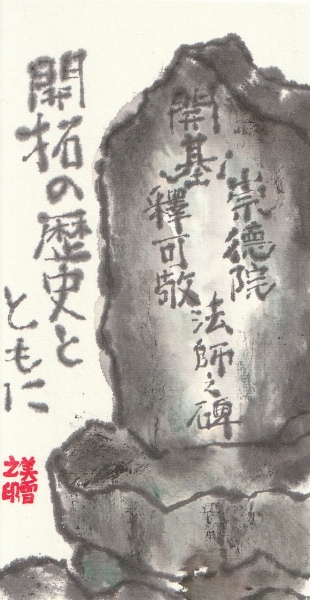 開基
崇徳院
釋可敬
法師之碑
開拓の歴史と
ともに
美雪
之印